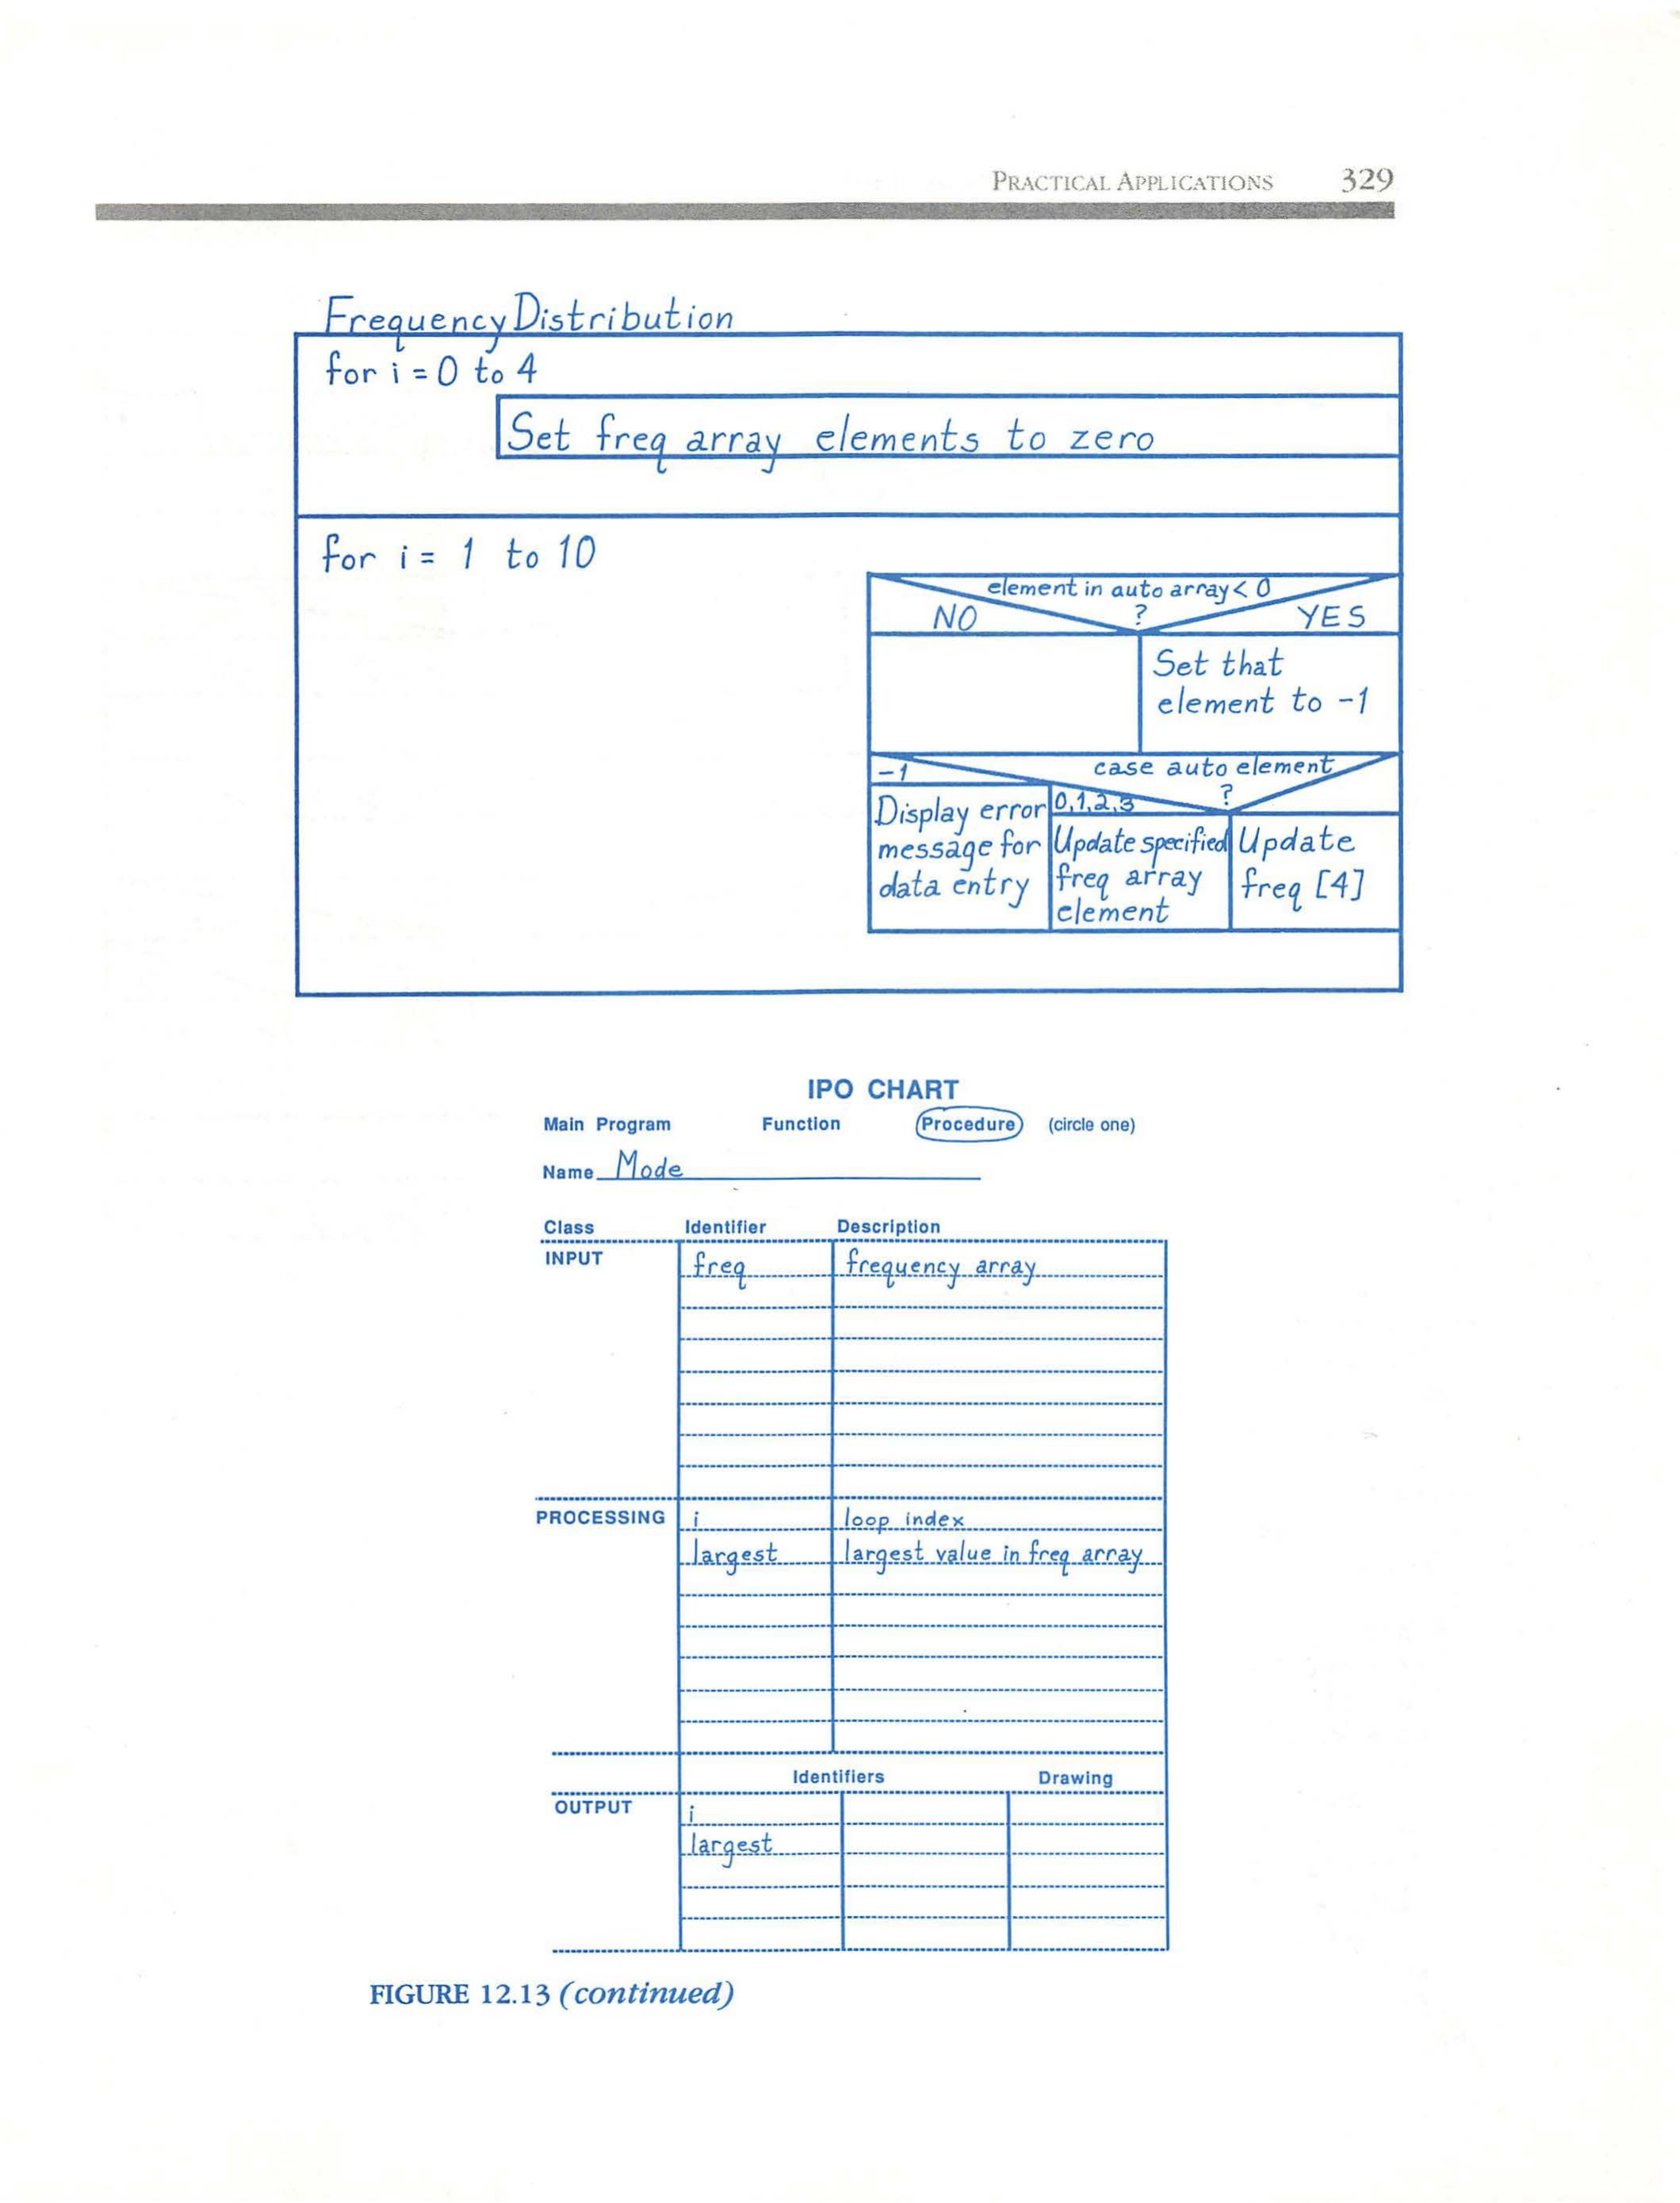 PRACTICAL APPLICATIONS 329
Frequency Distribution
for i = 0 to 4
Set freq array elements to zero
for i = 1 to 10
element in auto array < 0
NO ? YES
Set that
element to -1
-1 case auto element
?
0,1,2,3
Display error
message for
data entry
Update specified
freq array
element
Update
freq [4]
IPO CHART
Main Program Function Procedure (circle one)
Name Mode
Class Identifier Description
INPUT freq frequency array
PROCESSING i loop index
largest largest value in freq array
Identifiers Drawing
OUTPUT i
largest
FIGURE 12.13 (continued)